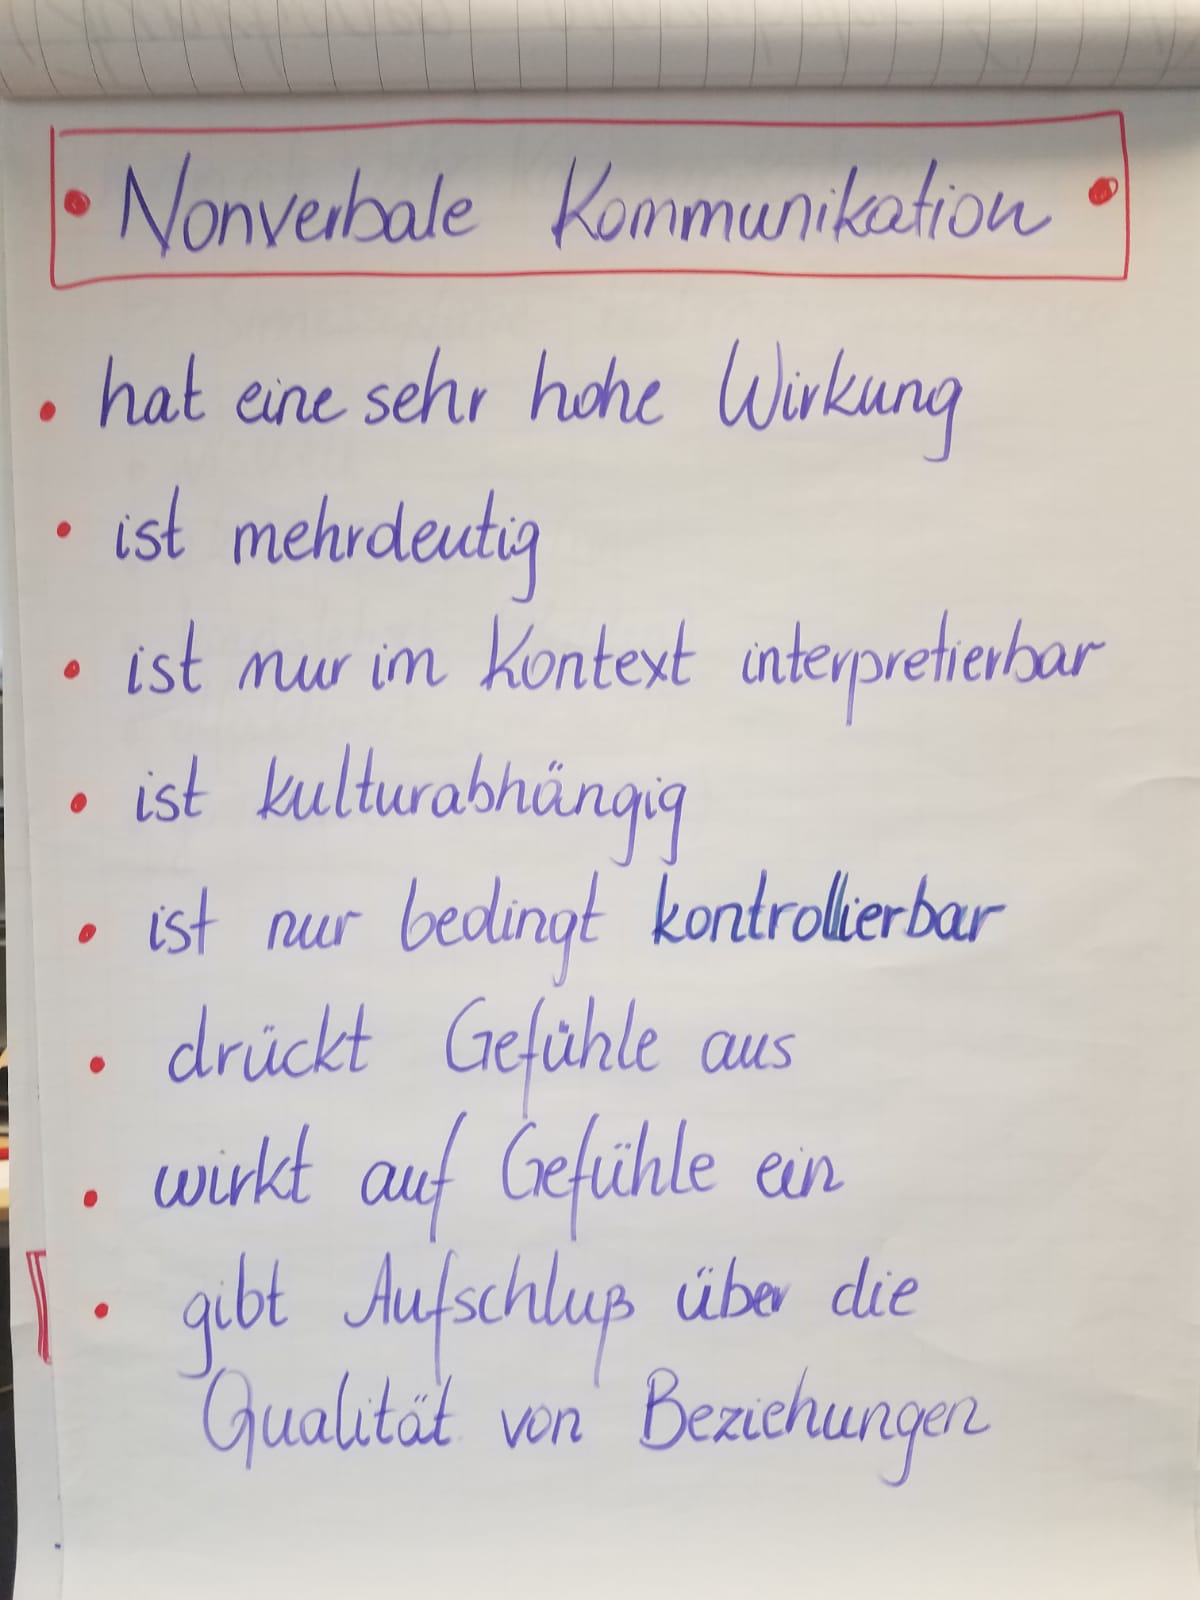 • Nonverbale Kommunikation •
• hat eine sehr hohe Wirkung
• ist mehrdeutig
• ist nur im Kontext interpretierbar
• ist kulturabhängig
• ist nur bedingt kontrollierbar
• drückt Gefühle aus
• wirkt auf Gefühle ein
• gibt Aufschluß über die
Qualität von Beziehungen